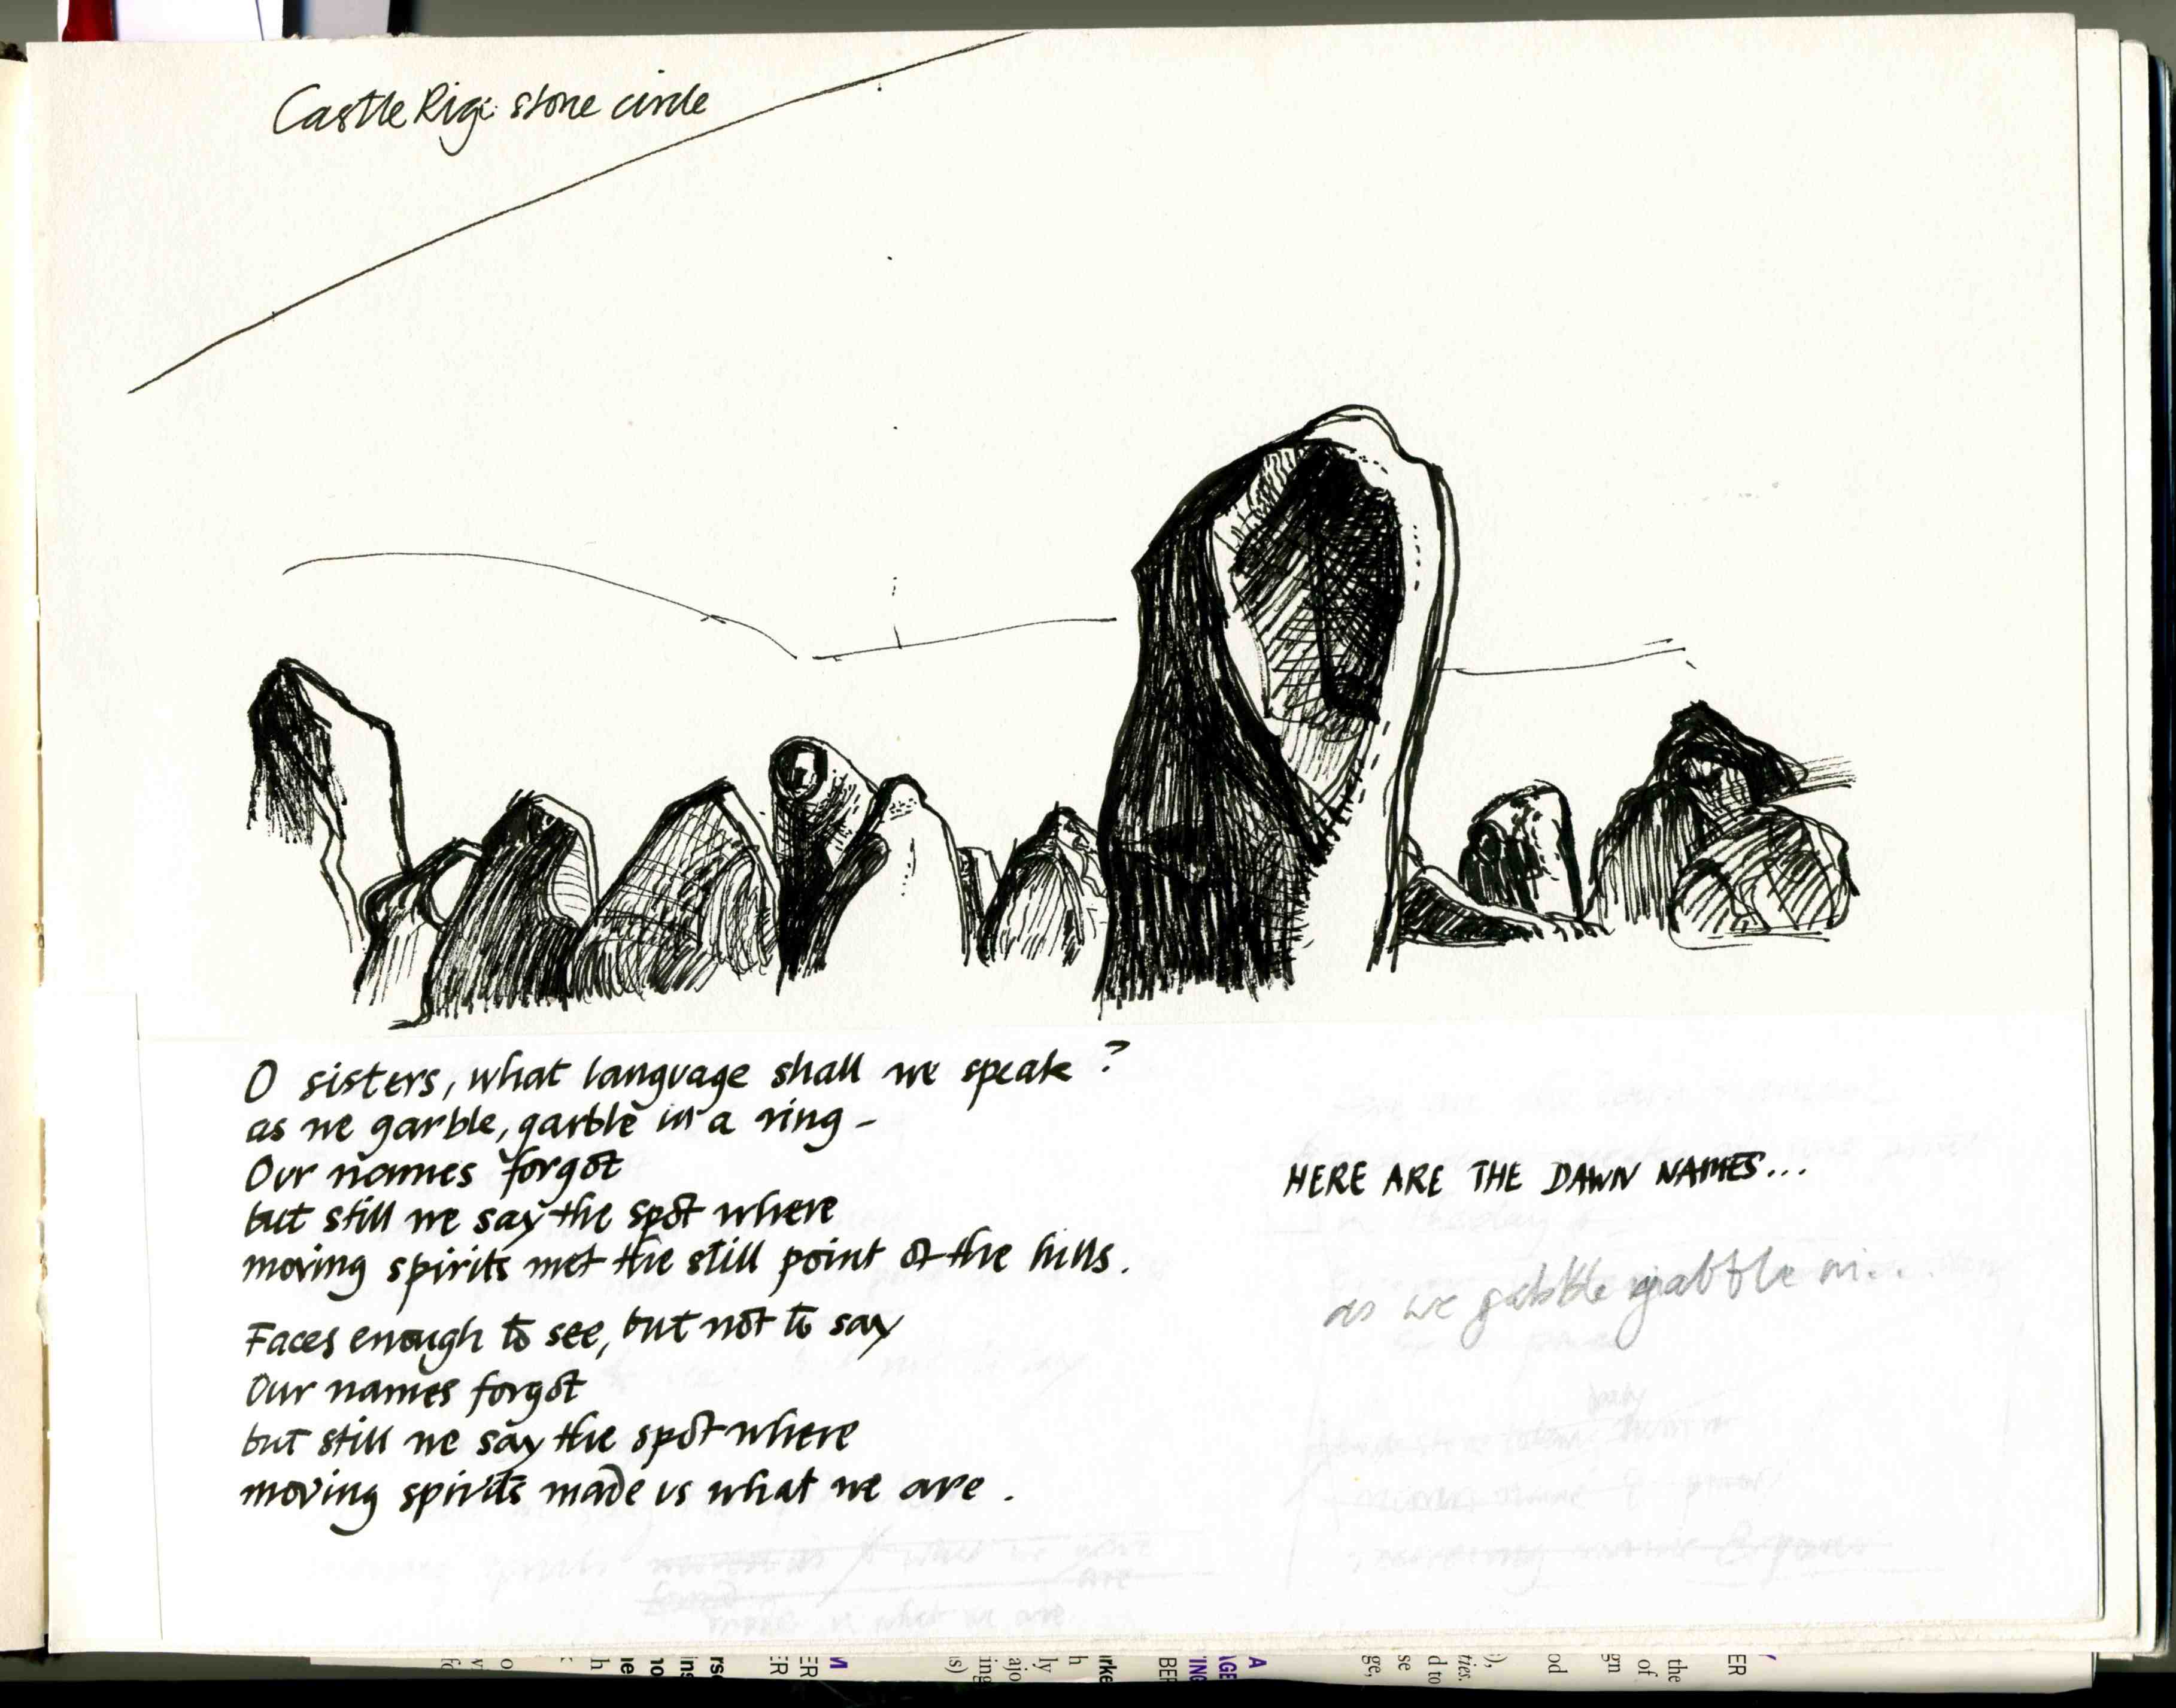 Castle Rigg stone circle
O sisters, what language shall we speak?
as we garble, garble in a ring –
Our names forgot
but still we say the spot where
moving spirits met the still point of the hills.
Faces enough to see, but not to say
Our names forgot
but still we say the spot where
moving spirits made us what we are.
HERE ARE THE DAWN NAMES...
as we gabble gabble in...